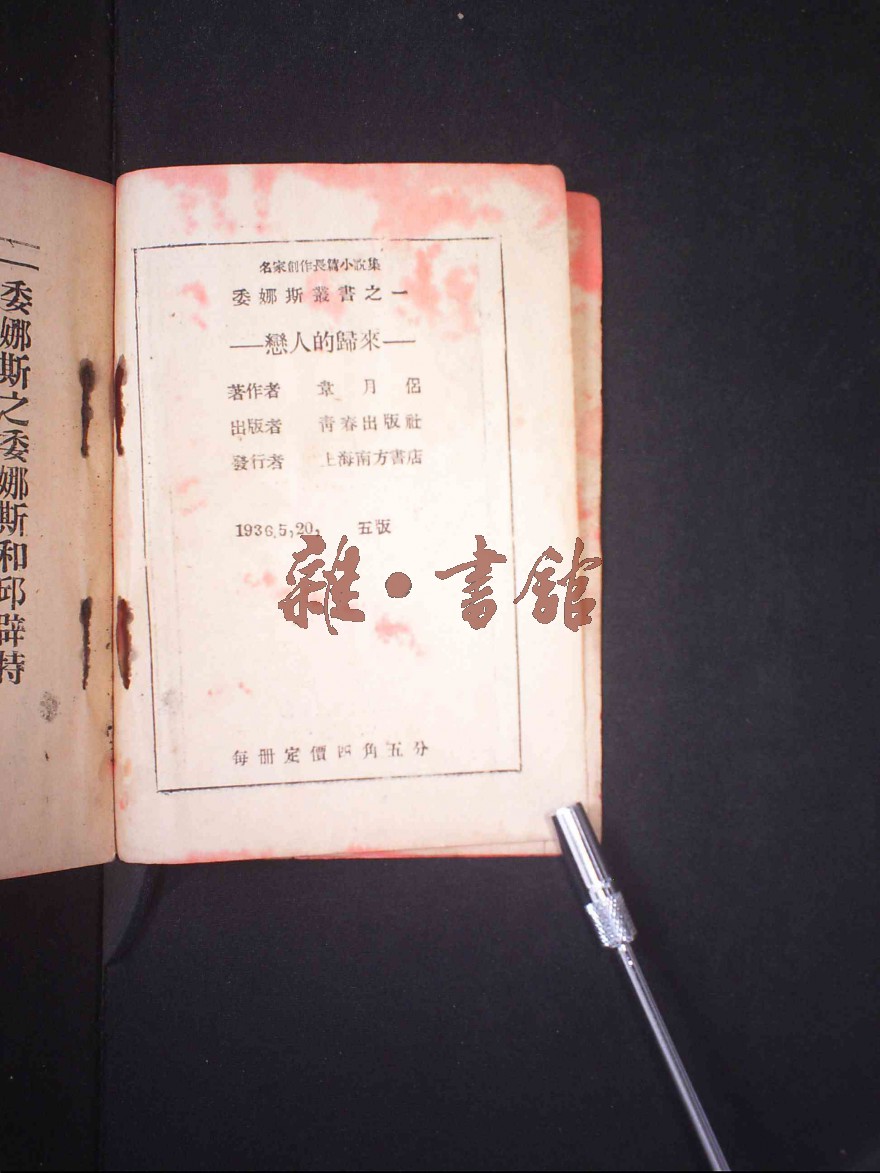 名家創作長篇小說集
委娜斯叢書之一
——戀人的歸來——
著作者　韋月侶
出版者　青春出版社
發行者　上海南方書店
1936,5,20,　五版
雜·書館
每冊定價四角五分
委娜斯之委娜斯和邱辟特